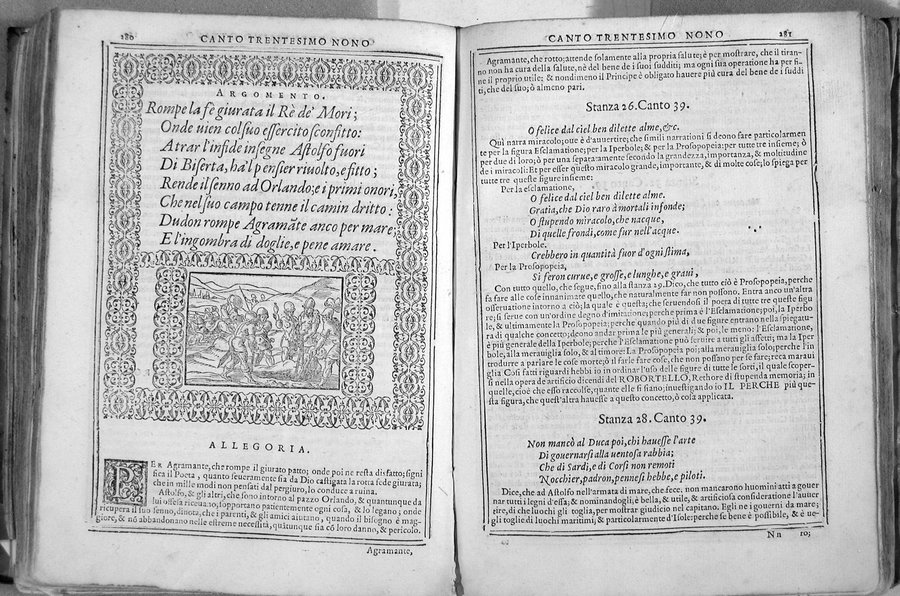 280
CANTO TRENTESIMO NONO
ARGOMENTO.
Rompe la fè giurata il Rè de' Mori;
Onde uien col suo essercito sconfitto:
A trar l'infide insegne Astolfo fuori
Di Biserta, ha'l pensier riuolto, e fitto;
Rende il senno ad Orlando; e i primi onori,
Che nel suo campo tenne il camin dritto:
Dudon rompe Agramāte anco per mare;
E l'ingombra di doglie, e pene amare.
ALLEGORIA.
PER Agramante, che rompe il giurato patto; onde poi ne resta disfatto; signi
fica il Poeta, quanto seueramente sia da Dio castigata la rotta fede giurata;
che in mille modi non pensati dal pergiuro, lo conduce a ruina.
Astolfo, & gli altri, che sono intorno al pazzo Orlando, & quantunque da
lui offesi riceuano, sopportano patientemente ogni cosa, & lo legano; onde
ricupera il suo senno, dinota, che i parenti, & gli amici aiutano, quando il bisogno è mag-
giore, & nō abbandonano nelle estreme necessità, quātunque sia cō loro danno, & pericolo.
Agramante,
CANTO TRENTESIMO NONO
281
Agramante, che rotto; attende solamente alla propria salute; è per mostrare, che il tiran-
no non ha cura della salute, nè del bene de i suoi sudditi; ma ogni sua operatione ha per fi-
ne il proprio utile; & nondimeno il Principe è obligato hauere più cura del bene de i suddi
ti, che del suo; ò almeno pari.
Stanza 26. Canto 39.
O felice dal ciel ben dilette alme, &c.
Quì narra miracolo; oue è d'auuertire; che simili narrationi si deono fare particolarmen
te per la figura Esclamatione; per la Iperbole; & per la Prosopopeia: per tutte tre insieme; ò
per due di loro; ò per una separatamente secondo la grandezza, importanza, & moltitudine
de i miracoli: Et per esser questo miracolo grande, importante, & di molte cose; lo spiega per
tutte tre queste figure insieme:
Per la esclamatione,
O felice dal ciel ben dilette alme.
Gratia, che Dio raro à mortali infonde;
O stupendo miracolo, che nacque,
Di quelle frondi, come fur nell'acque.
Per l'Iperbole.
Crebbero in quantità fuor d'ogni stima,
Per la Prosopopeia,
Si feron curue, e grosse, e lunghe, e graui,
Con tutto quello, che segue, fino alla stanza 29. Dico, che tutto ciò è Prosopopeia, perche
fa fare alle cose innanimate quello, che naturalmente far non possono. Entra anco un'altra
osseruatione intorno a ciò; la quale è questa; che seruendosi il poeta di tutte tre queste figu
re; si serue con un'ordine degno d'imitatione; perche prima è l'Esclamatione; poi, la Iperbo
le, & ultimamente la Prosopopeia; perche quando più di due figure entrano nella spiegatu-
ra di qualche concetto; deono andar prima le più generali; & poi, le meno: l'Esclamatione,
è più generale della Iperbole; perche l'Esclamatione può seruire a tutti gli affetti; ma la Iper
bole, alla merauiglia solo, & al timore: La Prosopopeia poi; alla merauiglia solo; perche l'in
trodurre a parlare le cose morte; ò il farle fare cose, che non possano per se fare; reca maraui
glia Così fatti riguardi hebbi io in ordinar l'uso delle figure di tutte le sorti, il quale scoper-
si nella opera de artificio dicendi del ROBORTELLO, Rethore di stupenda memoria; in
quelle, cioè che esso raccolse, quante elle si siano; inuestigando io IL PERCHE più que-
sta figura, che quest'altra hauesse a questo concetto, ò cosa applicata.
Stanza 28. Canto 39.
Non mancò al Duca poi, chi hauesse l'arte
Di gouernarsi alla uentosa rabbia;
Che di Sardi, e di Corsi non remoti
Nocchier, padron, pennesi hebbe, e piloti.
Dice, che ad Astolfo nell'armata di mare, che fece, non mancarono huomini atti a gouer
nar tutti i legni d'essa; & nominandogli; è bella, & utile, & artificiosa consideratione l'auuer
tire, di che luochi gli toglia, per mostrar giudicio nel capitano. Egli ne i gouerni da mare;
gli toglie di luochi maritimi; & particolarmente d'Isole: perche se bene è possibile, & è ue-
Nn
ro;